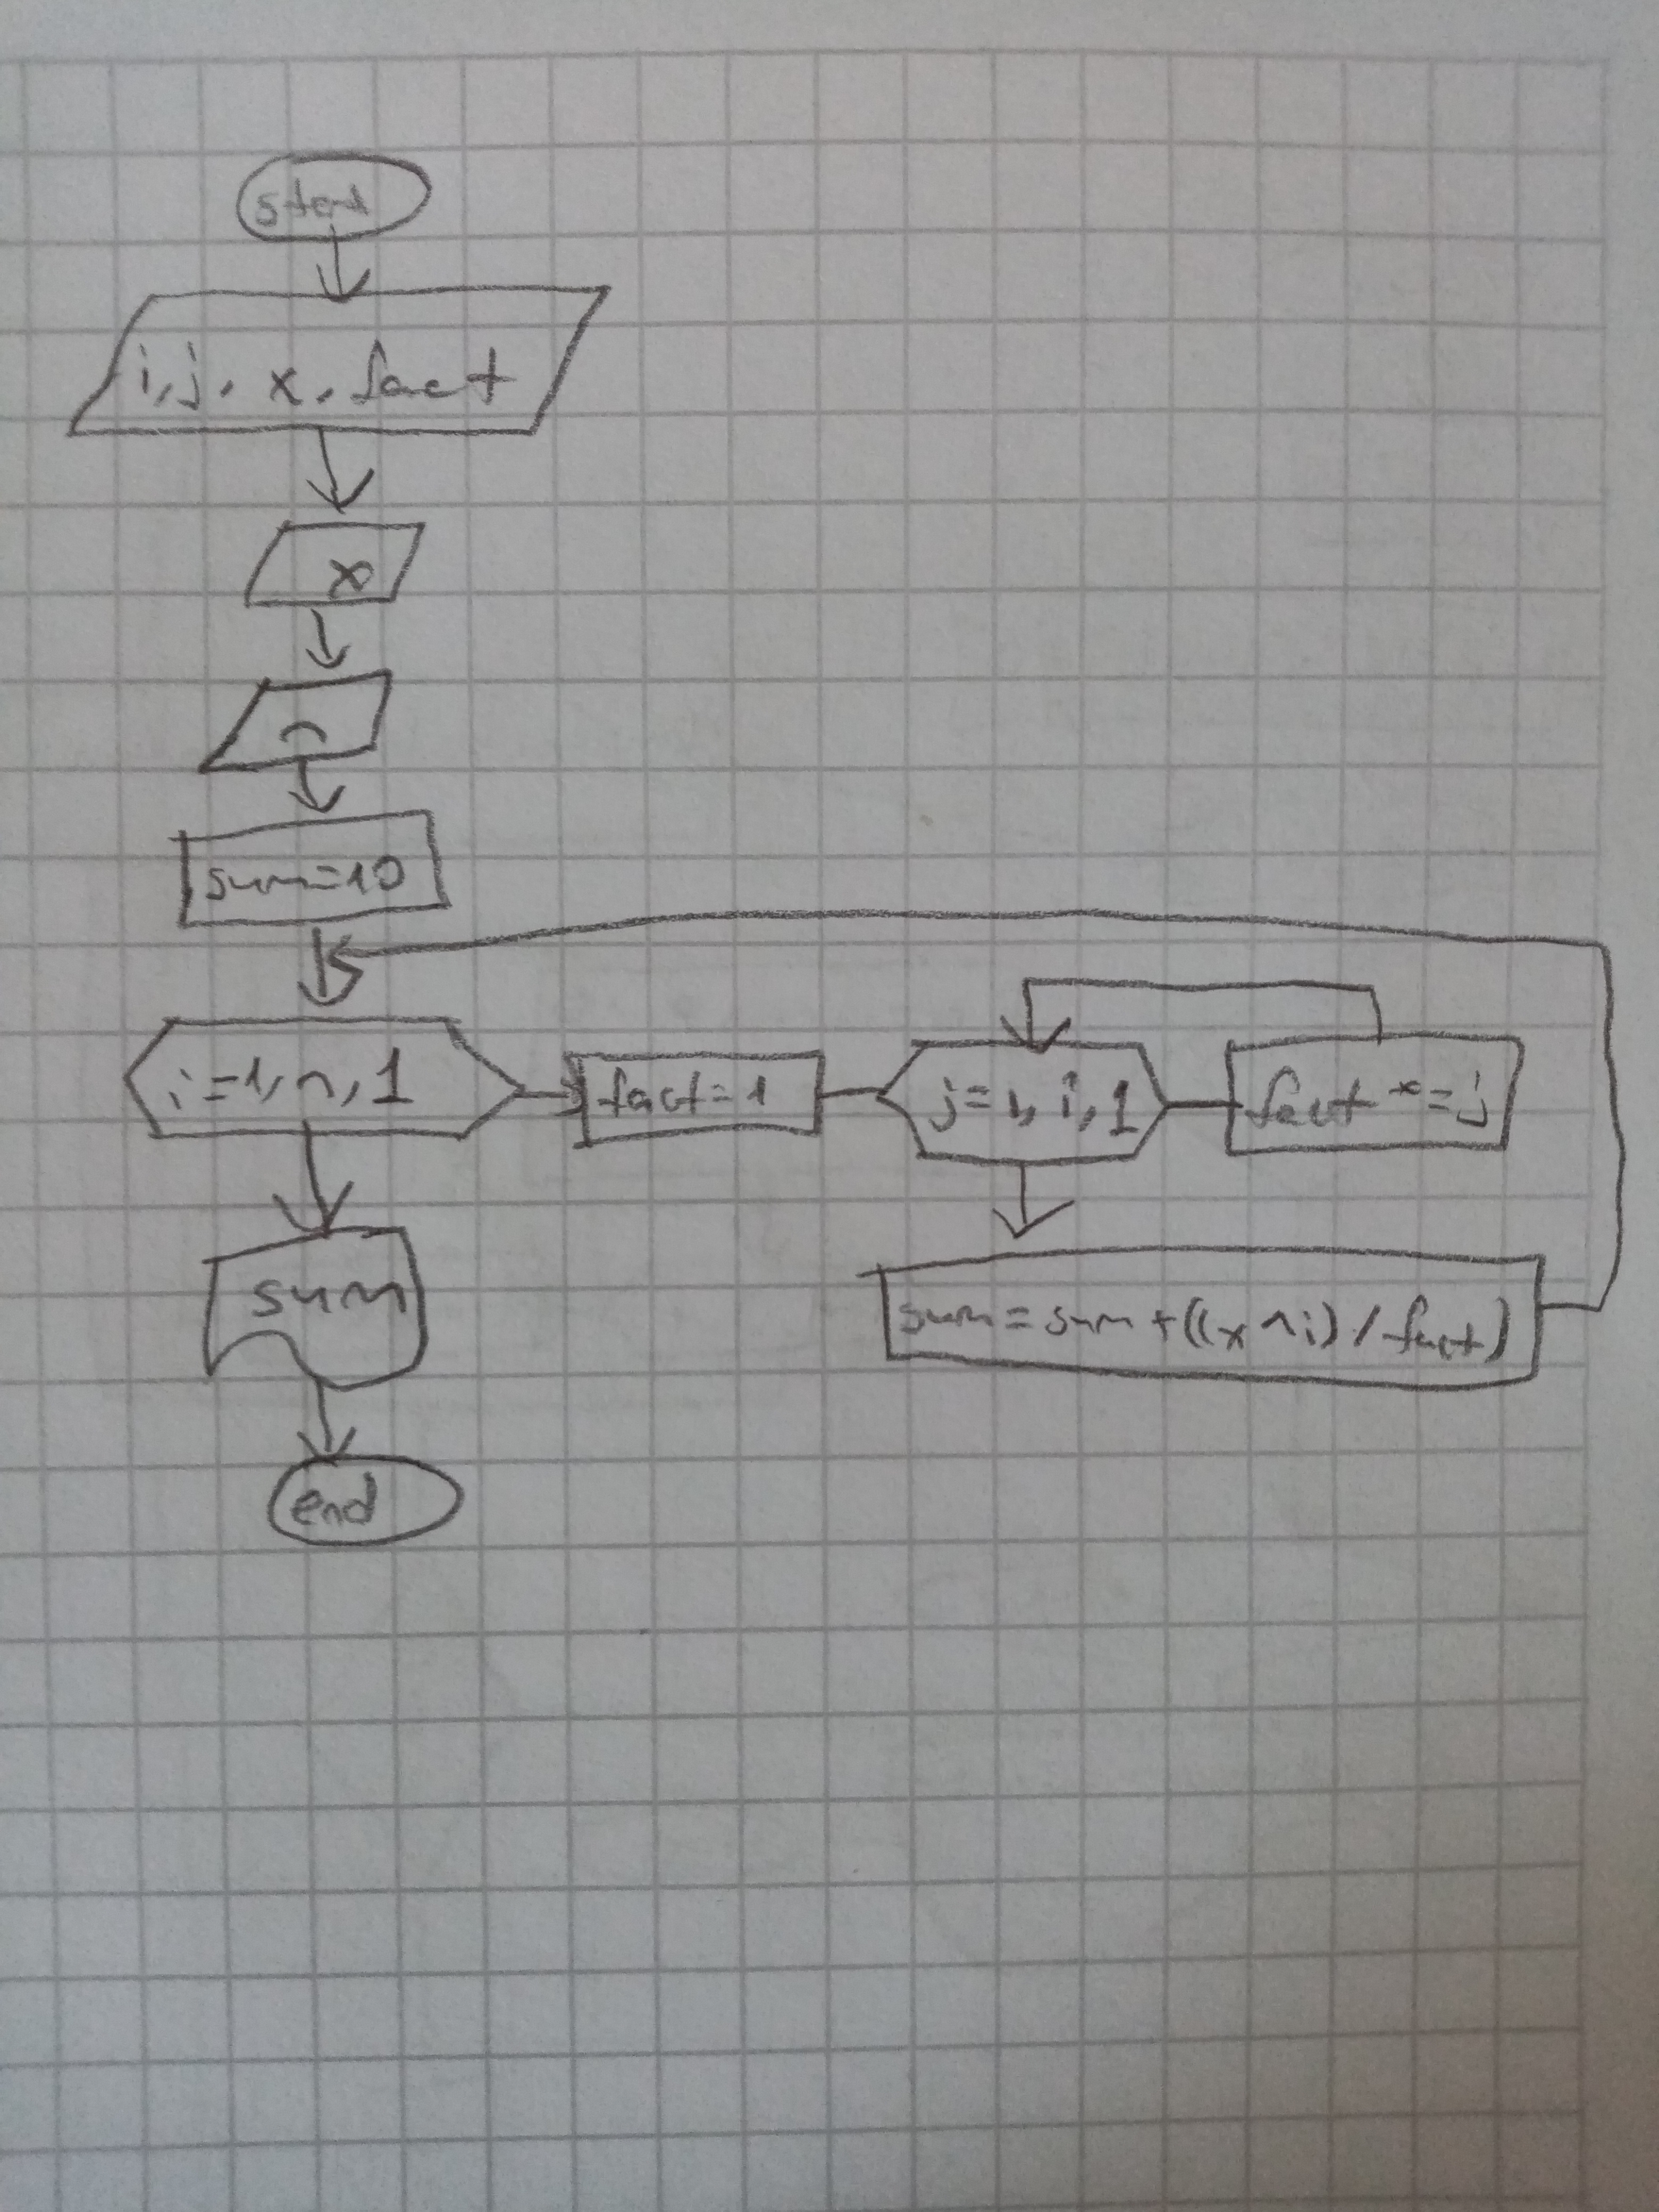 start
i, j, x, fact
x
n
sum=10
i=1,n,1
fact=1
j=1,i,1
fact*=j
sum
sum=sum+((x^i)/fact)
end